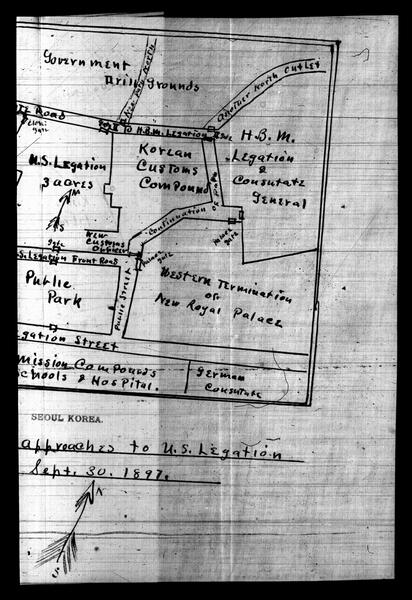 Government
Drill grounds
New Road North
Another North Outlet
Road
Gate
H.B.M. Legation
Gate
H.B.M.
Legation
&
Consulate
General
Korean
Customs
Compound
U.S. Legation
3 acres
N
S
Continuation
of Path
Palace
gate
New
Customs
Officer
Gate
S. Legation Front Road
Palace
gate
Public
Park
Public Street
Western Termination
of
New Royal Palace
gation Street
mission Compounds
chools & Hospital.
German
Consulate
SEOUL KOREA.
approaches to U.S. Legation
Sept. 30. 1897.
N
S